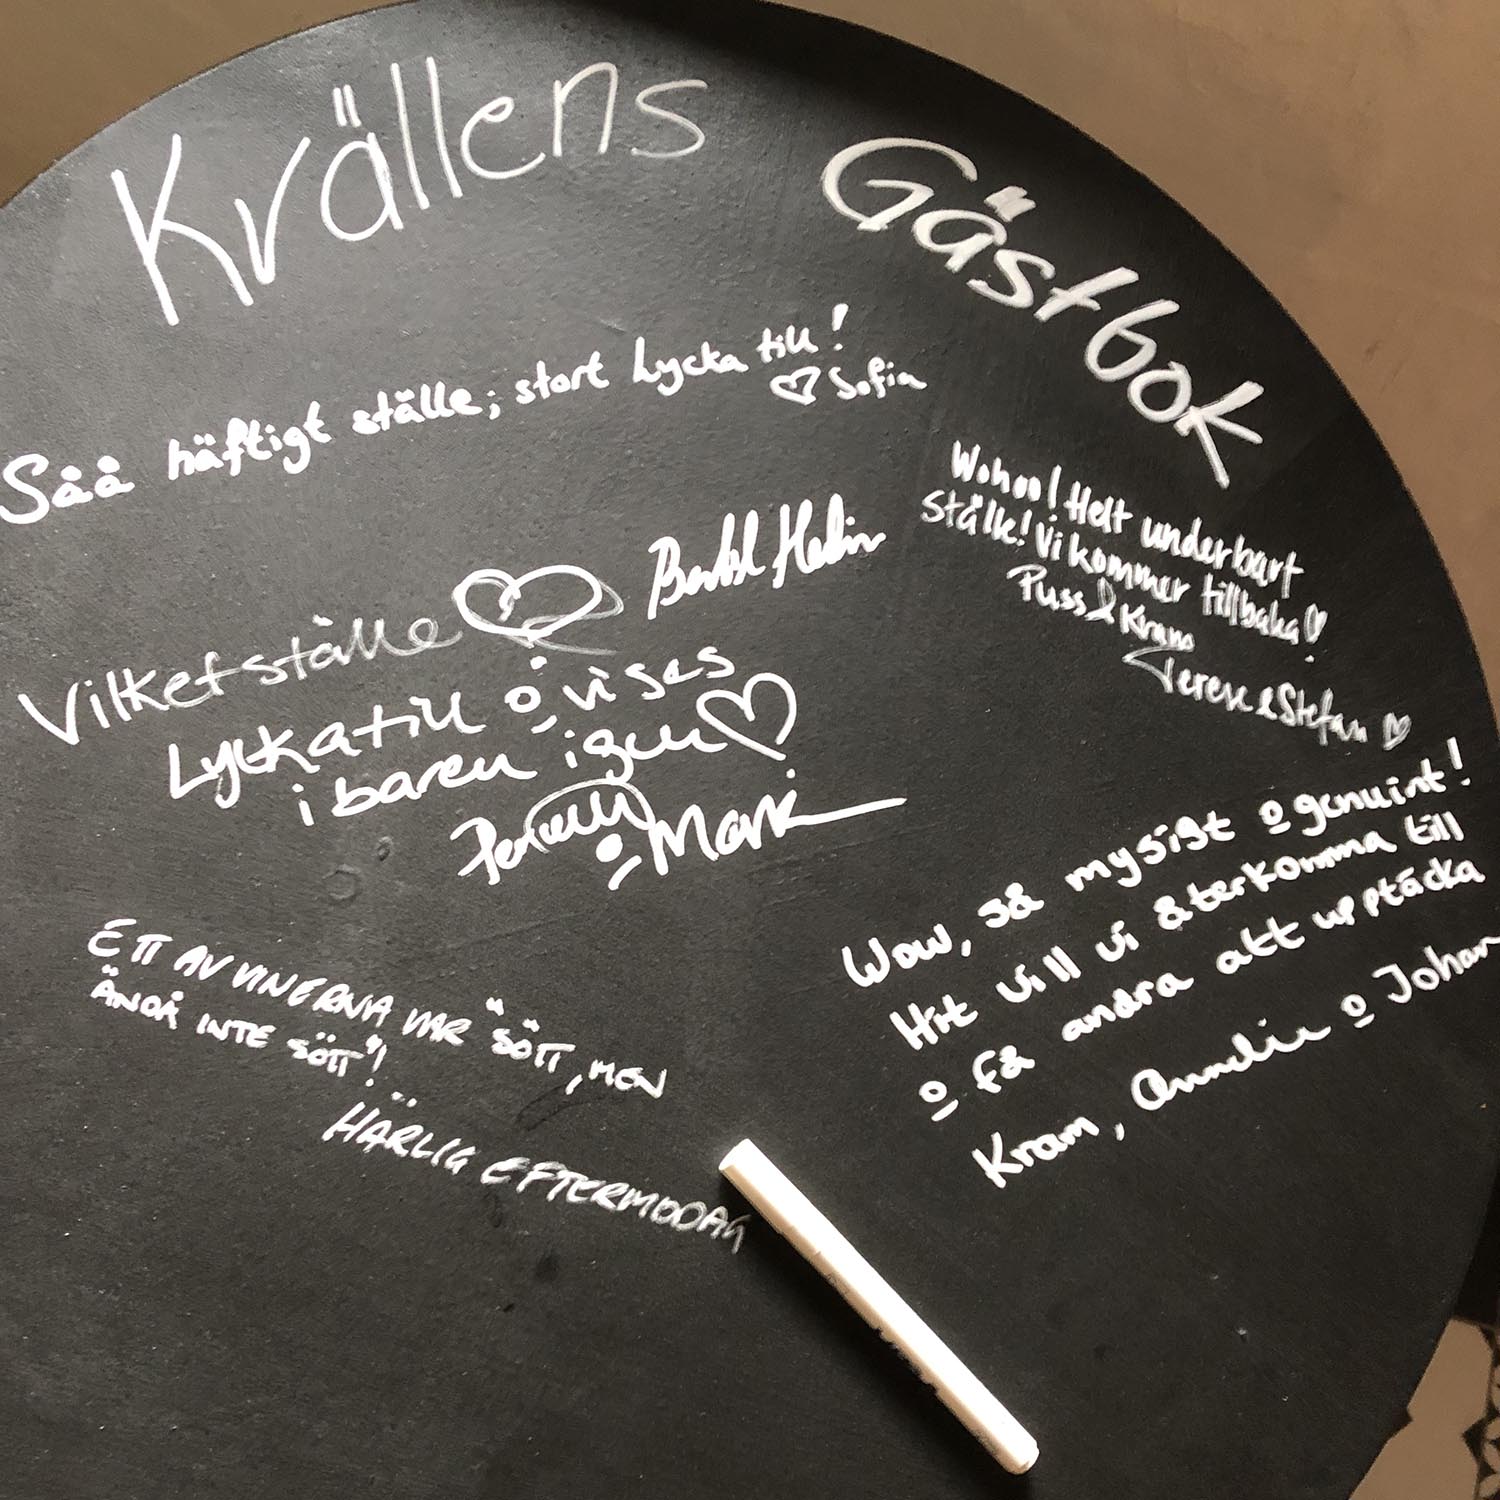 Krällens
Gästbok
Såå häftigt ställe; stort lycka till!
♡ Sofia
Wohoo! Helt underbart
Ställe! Vi kommer tillbaka!♡
Puss & Kram
Terese & Stefan ♡
Vilket ställe ♡
Lycka till o vi ses
i baren igen ♡
o Maria
Wow, så mysigt o genuint!
Hit vill vi återkomma till
o få andra att upptäcka
Kram, Annelie o Johan
ETT AV VINERNA VAR "SÖTT, MEN
ÄNDÅ INTE SÖTT"!
HÄRLIG EFTERMIDDAG